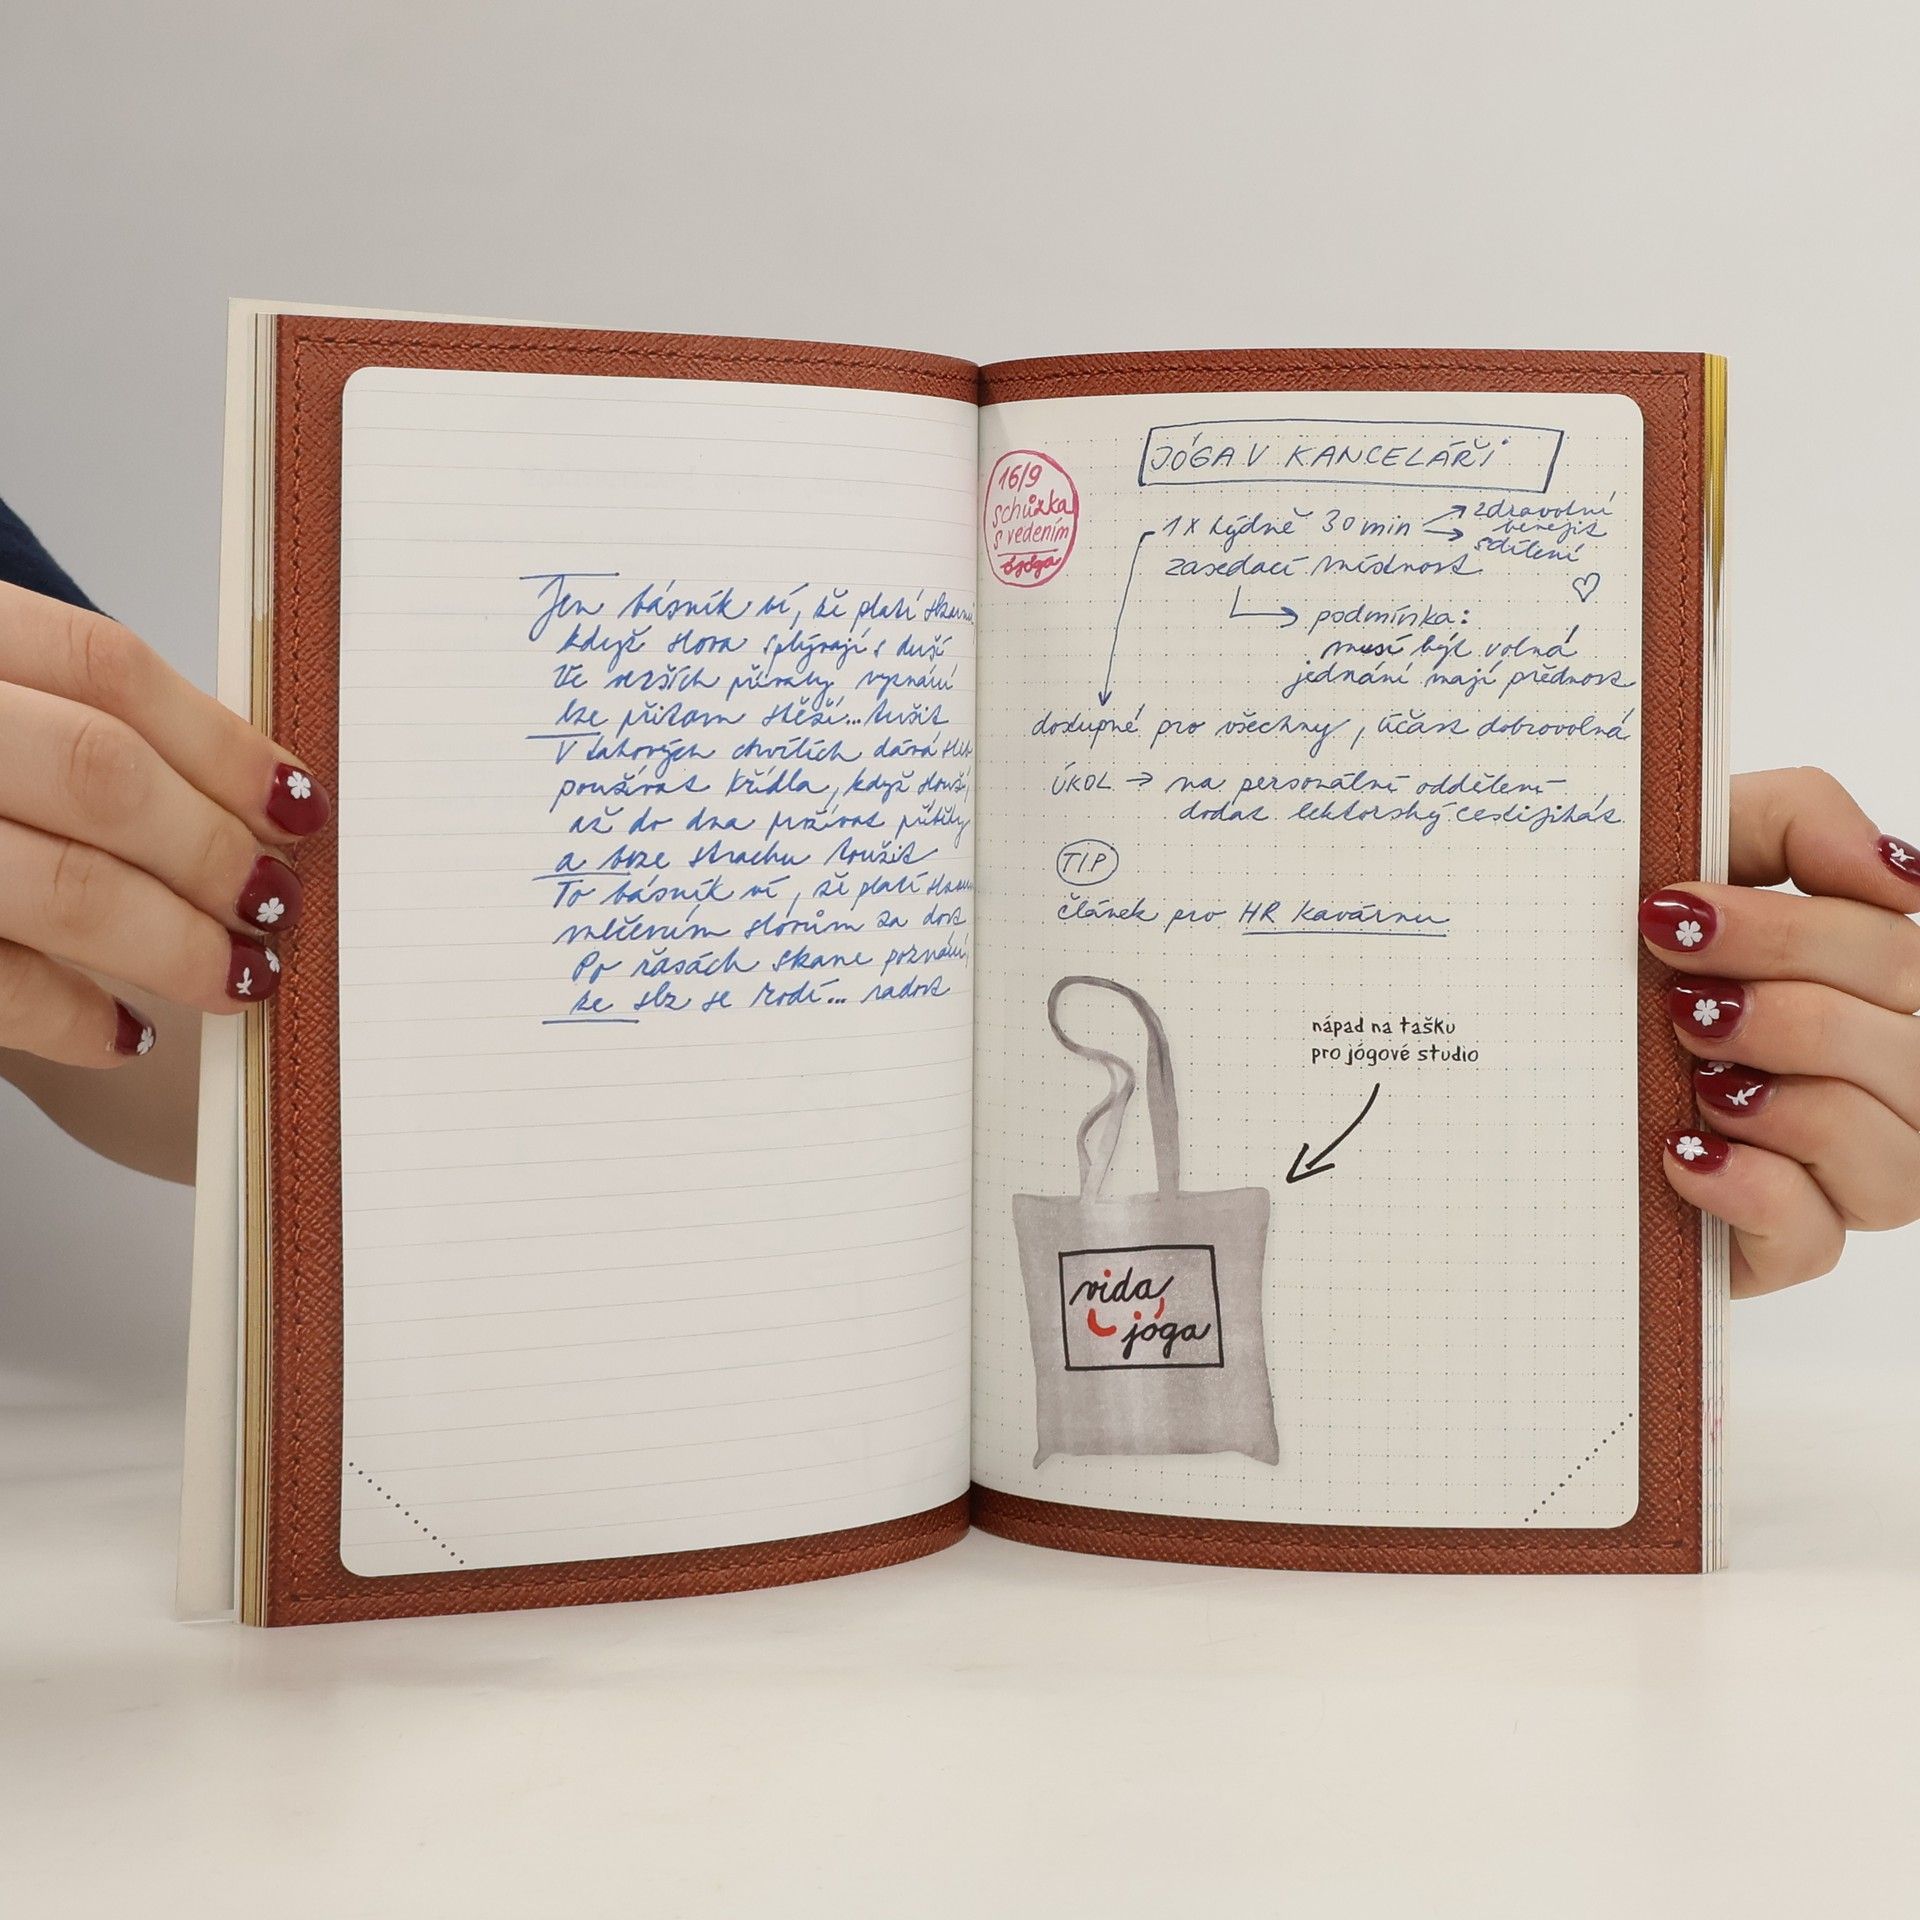 Jen básník ví, že platí
když slova splývají s duší
Ve verších přívaly vyznání
lze přitom stěží... tušit
V takových chvílích dává
používat křídla, když
až do dna prožívat příběhy
a beze strachu toužit
To básník ví, že platí
mlčením slovům za dost
Po řasách skane poznání,
že slz se rodí... radost
16/9
schůzka
s vedením
jóga
JÓGA V KANCELÁŘI
1x týdně 30 min
zdravotní
benefit
sdílení
zasedací místnost
podmínka:
musí být volná
jednání mají přednost
dostupné pro všechny, účast dobrovolná
ÚKOL → na personální oddělení
dodat lektorský certifikát
TIP
článek pro HR Kavárnu
nápad na tašku
pro jógové studio
vida,
jóga